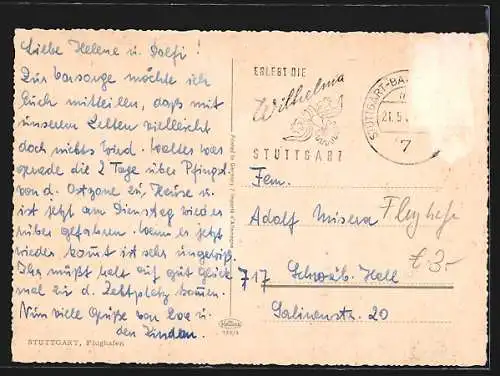 Liebe Helene u. Dolfi!
Zur Vorsorge möchte ich
Euch mitteilen, daß mit
unserem Zelten vielleicht
doch nichts wird. Walter war
gerade die 2 Tage über Pfingst.
von d. Ostzone zu Hause u.
ist jetzt am Dienstag wieder
rüber gefahren. Wann er jetzt
wieder kommt ist sehr ungewiß.
Ihr müßt halt auf gut Glück
mal zu d. Zeltplatz kommen.
Nun viele Grüße von
den Lindau.
STUTTGART, Flughafen
ERLEBT DIE
Wilhelma
STUTTGART
STUTTGART-BA
21.5.
7
Fam.
Adolf Misera
717 Schwäb. Hall
Salinenstr. 20
Flughafe
€ 3.-